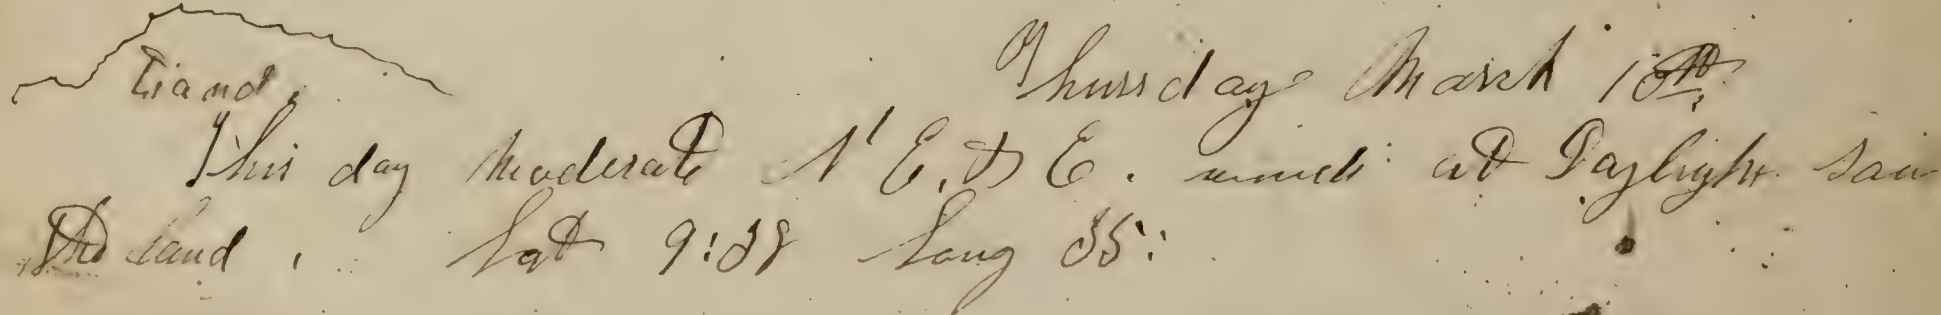 Thursday March 10th
This day Moderate N E. to E. winds at Daylight saw
the Land. Lat 9:38 Long 35: